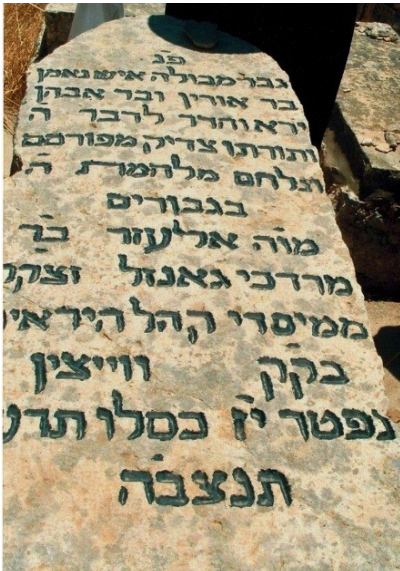 פנ
גבר מבולה איש נאמן
בר אורין ובר אבהן
ירא וחרד לדבר ה
ותורתו צדיק מפורסם
ונלחם מלחמת ה
בגבורים
מוה אליעזר בר
מרדכי גאנזל זצק
ממיסדי קהל היראי
בקק ווייצין
נפטר יז כסלו תרע
תנצבה